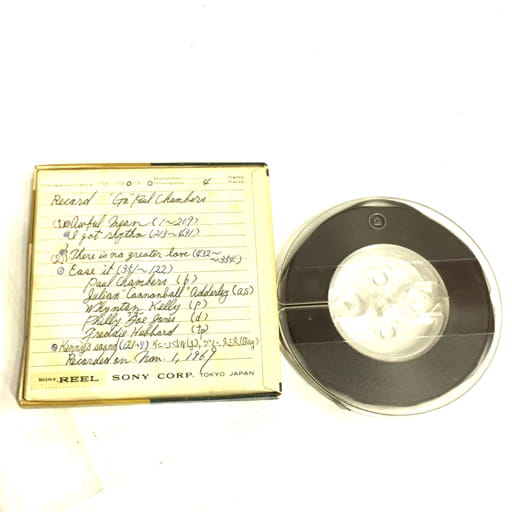 4 Tracks
Record "Go" Paul Chambers
Awful Mean (1~209)
I got rhythm (213~431)
There is no greater love (432~
~354)
Ease it (341~122)
Paul Chambers (b)
Julian "Cannonball" Adderley (as)
Whynton Kelly (p)
Philly Joe Jones (d)
Freddie Hubbard (tp)
Kenny's sound (121~4)
Recorded on 1, 1969
SONY REEL SONY CORP. TOKYO JAPAN